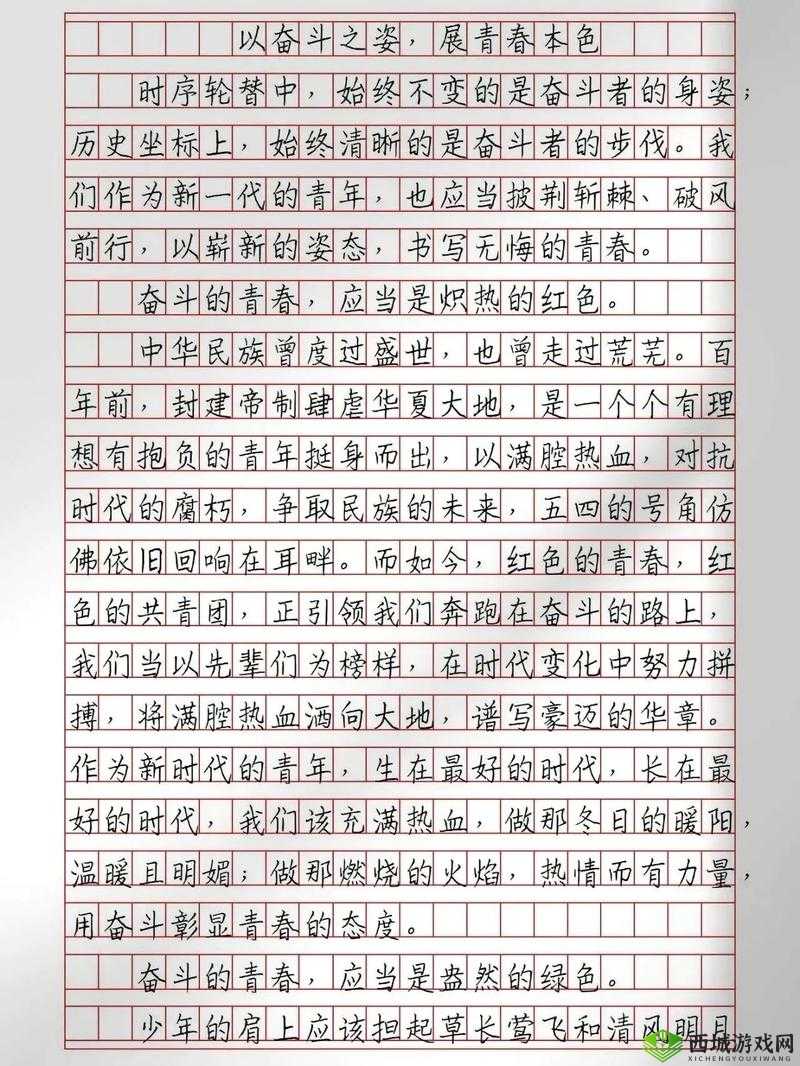 以奋斗之姿，展青春本色
时序轮替中，始终不变的是奋斗者的身姿；
历史坐标上，始终清晰的是奋斗者的步伐。我
们作为新一代的青年，也应当披荆斩棘、破风
前行，以崭新的姿态，书写无悔的青春。
奋斗的青春，应当是炽热的红色。
中华民族曾度过盛世，也曾走过荒芜。百
年前，封建帝制肆虐华夏大地，是一个个有理
想有抱负的青年挺身而出，以满腔热血，对抗
时代的腐朽，争取民族的未来，五四的号角仿
佛依旧回响在耳畔。而如今，红色的青春，红
色的共青团，正引领我们奔跑在奋斗的路上，
我们当以先辈们为榜样，在时代变化中努力拼
搏，将满腔热血洒向大地，谱写豪迈的华章。
作为新时代的青年，生在最好的时代，长在最
好的时代，我们该充满热血，做那冬日的暖阳，
温暖且明媚；做那燃烧的火焰，热情而有力量，
用奋斗彰显青春的态度。
奋斗的青春，应当是盎然的绿色。
少年的肩上应该担起草长莺飞和清风明月
西城游戏网
XICHENGYOUXIWANG